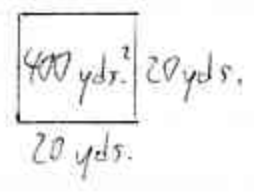 400 yds.² 20 yds.
20 yds.